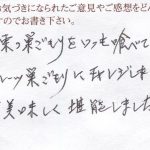 お気づきになられたご意見やご感想をどん
すのでお書き下さい。
栗っ巣ごもりをいつも喰べて
ーツ巣ごもりにチャレンジしま
美味しく堪能しました